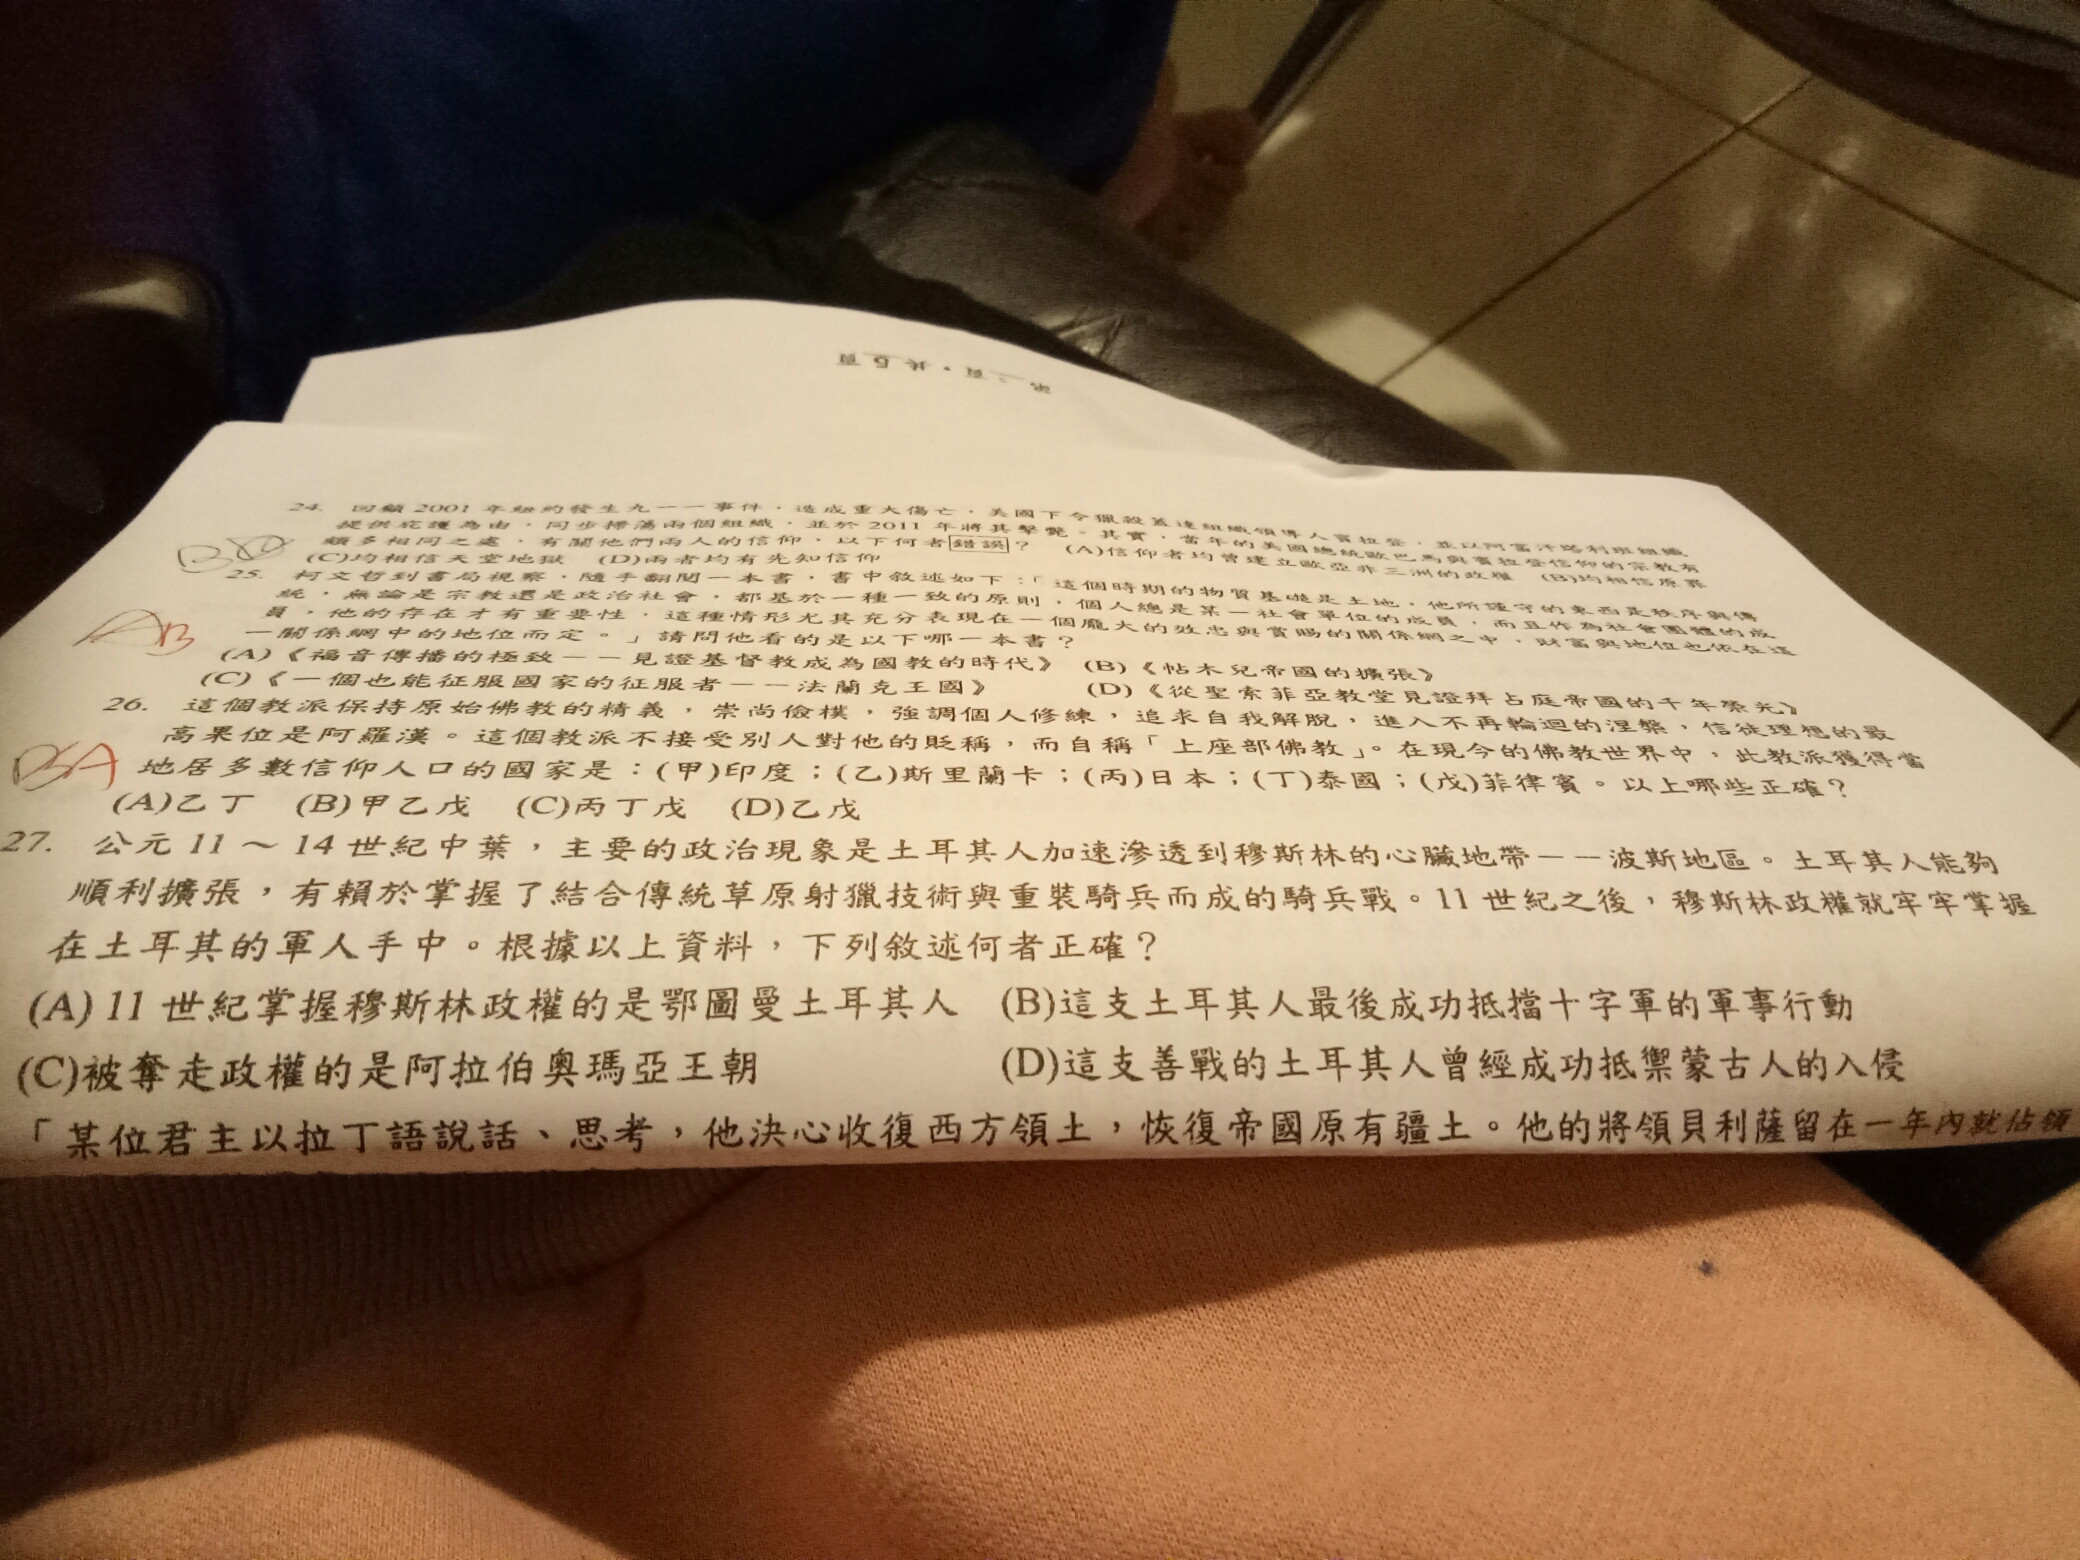 第二頁，共5頁
24. 回顧 2001 年紐約發生九一一事件，造成重大傷亡，美國下令獵殺蓋達組織領導人賓拉登，並以阿富汗塔利班組織
提供庇護為由，同步掃蕩兩個組織，並於 2011 年將其擊斃。其實，當年的美國總統歐巴馬與賓拉登信仰的宗教有
頗多相同之處，有關他們兩人的信仰，以下何者錯誤？ (A)信仰者均曾建立歐亞非三洲的政權 (B)均相信原罪
(C)均相信天堂地獄 (D)兩者均有先知信仰
25. 柯文哲到書局視察，隨手翻閱一本書，書中敘述如下：「這個時期的物質基礎是土地，他所謹守的東西是秩序與傳
統，無論是宗教還是政治社會，都基於一種一致的原則，個人總是某一社會單位的成員，而且作為社會團體的成
員，他的存在才有重要性，這種情形尤其充分表現在一個龐大的效忠與賞賜的關係網之中，財富與地位也依在這
一關係網中的地位而定。」請問他看的是以下哪一本書？
AB
(A)《福音傳播的極致－－見證基督教成為國教的時代》 (B)《帖木兒帝國的擴張》
(C)《一個也能征服國家的征服者－－法蘭克王國》 (D)《從聖索菲亞教堂見證拜占庭帝國的千年榮光》
26. 這個教派保持原始佛教的精義，崇尚儉樸，強調個人修練，追求自我解脫，進入不再輪迴的涅槃，信徒理想的最
高果位是阿羅漢。這個教派不接受別人對他的貶稱，而自稱「上座部佛教」。在現今的佛教世界中，此教派獲得當
BA
地居多數信仰人口的國家是：(甲)印度；(乙)斯里蘭卡；(丙)日本；(丁)泰國；(戊)菲律賓。以上哪些正確？
(A)乙丁 (B)甲乙戊 (C)丙丁戊 (D)乙戊
27. 公元 11～14 世紀中葉，主要的政治現象是土耳其人加速滲透到穆斯林的心臟地帶－－波斯地區。土耳其人能夠
順利擴張，有賴於掌握了結合傳統草原射獵技術與重裝騎兵而成的騎兵戰。11 世紀之後，穆斯林政權就牢牢掌握
在土耳其的軍人手中。根據以上資料，下列敘述何者正確？
(A) 11 世紀掌握穆斯林政權的是鄂圖曼土耳其人 (B)這支土耳其人最後成功抵擋十字軍的軍事行動
(C)被奪走政權的是阿拉伯奧瑪亞王朝 (D)這支善戰的土耳其人曾經成功抵禦蒙古人的入侵
「某位君主以拉丁語說話、思考，他決心收復西方領土，恢復帝國原有疆土。他的將領貝利薩留在一年內就佔領